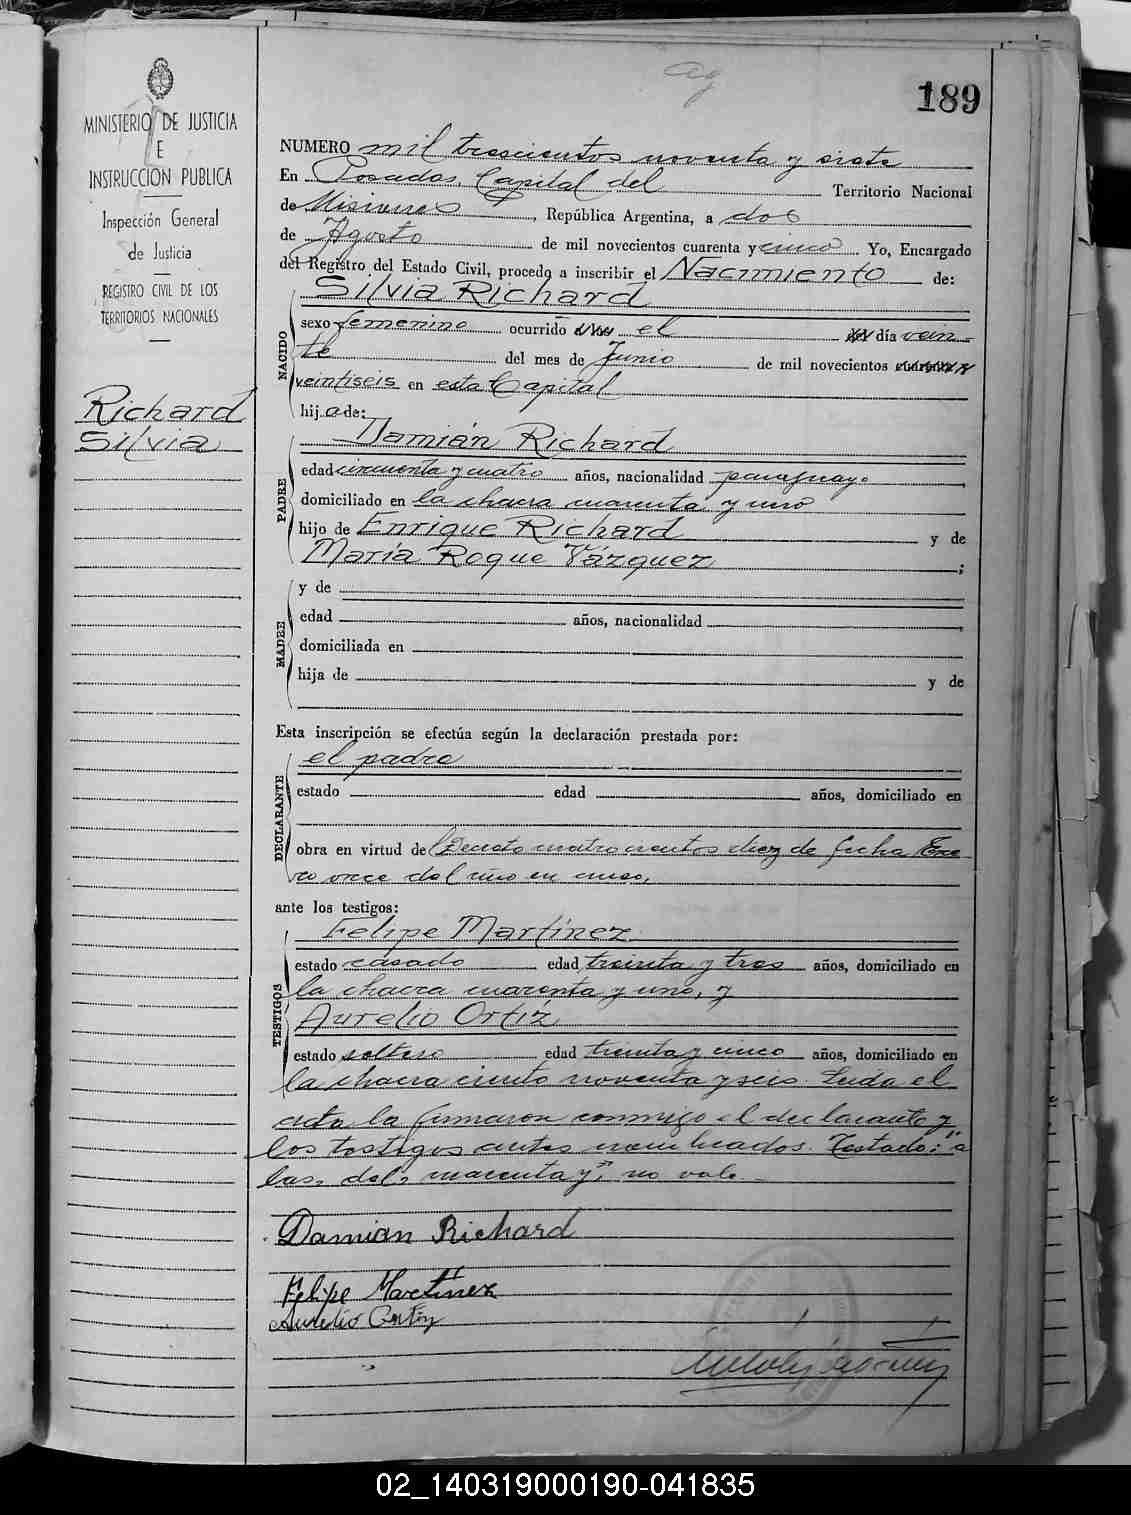 189
MINISTERIO DE JUSTICIA
E
INSTRUCCION PUBLICA
Inspección General
de Justicia
REGISTRO CIVIL DE LOS
TERRITORIOS NACIONALES
Richard
Silvia
NUMERO mil trescientos noventa y siete
En Posadas, Capital del Territorio Nacional
de Misiones, República Argentina, a dos
de Agosto de mil novecientos cuarenta y cinco Yo, Encargado
del Registro del Estado Civil, procedo a inscribir el Nacimiento de:
NACIDO
Silvia Richard
sexo femenino ocurrido el día vein-
te del mes de Junio de mil novecientos
veintiseis en esta Capital
hija de:
PADRE
Damián Richard
edad cincuenta y cuatro años, nacionalidad paraguayo
domiciliado en la chacra cuarenta y uno
hijo de Enrique Richard y de
María Roque Vázquez ;
MADRE
y de
edad años, nacionalidad
domiciliada en
hija de y de
Esta inscripción se efectúa según la declaración prestada por:
DECLARANTE
el padre
estado edad años, domiciliado en
obra en virtud de Decreto cuatrocientos diez de fecha Ene-
ro once del año en curso,
ante los testigos:
TESTIGOS
Felipe Martínez
estado casado edad treinta y tres años, domiciliado en
la chacra cuarenta y uno, y
Aurelio Ortíz
estado soltero edad treinta y cinco años, domiciliado en
la chacra ciento noventa y seis. Leida el
acta la firmaron conmigo el declarante y
los testigos antes nombrados. Testado: "a
las, del, cuarenta y", no vale.-
Damian Richard
Felipe Martinez
Aurelio Ortiz
02_140319000190-041835